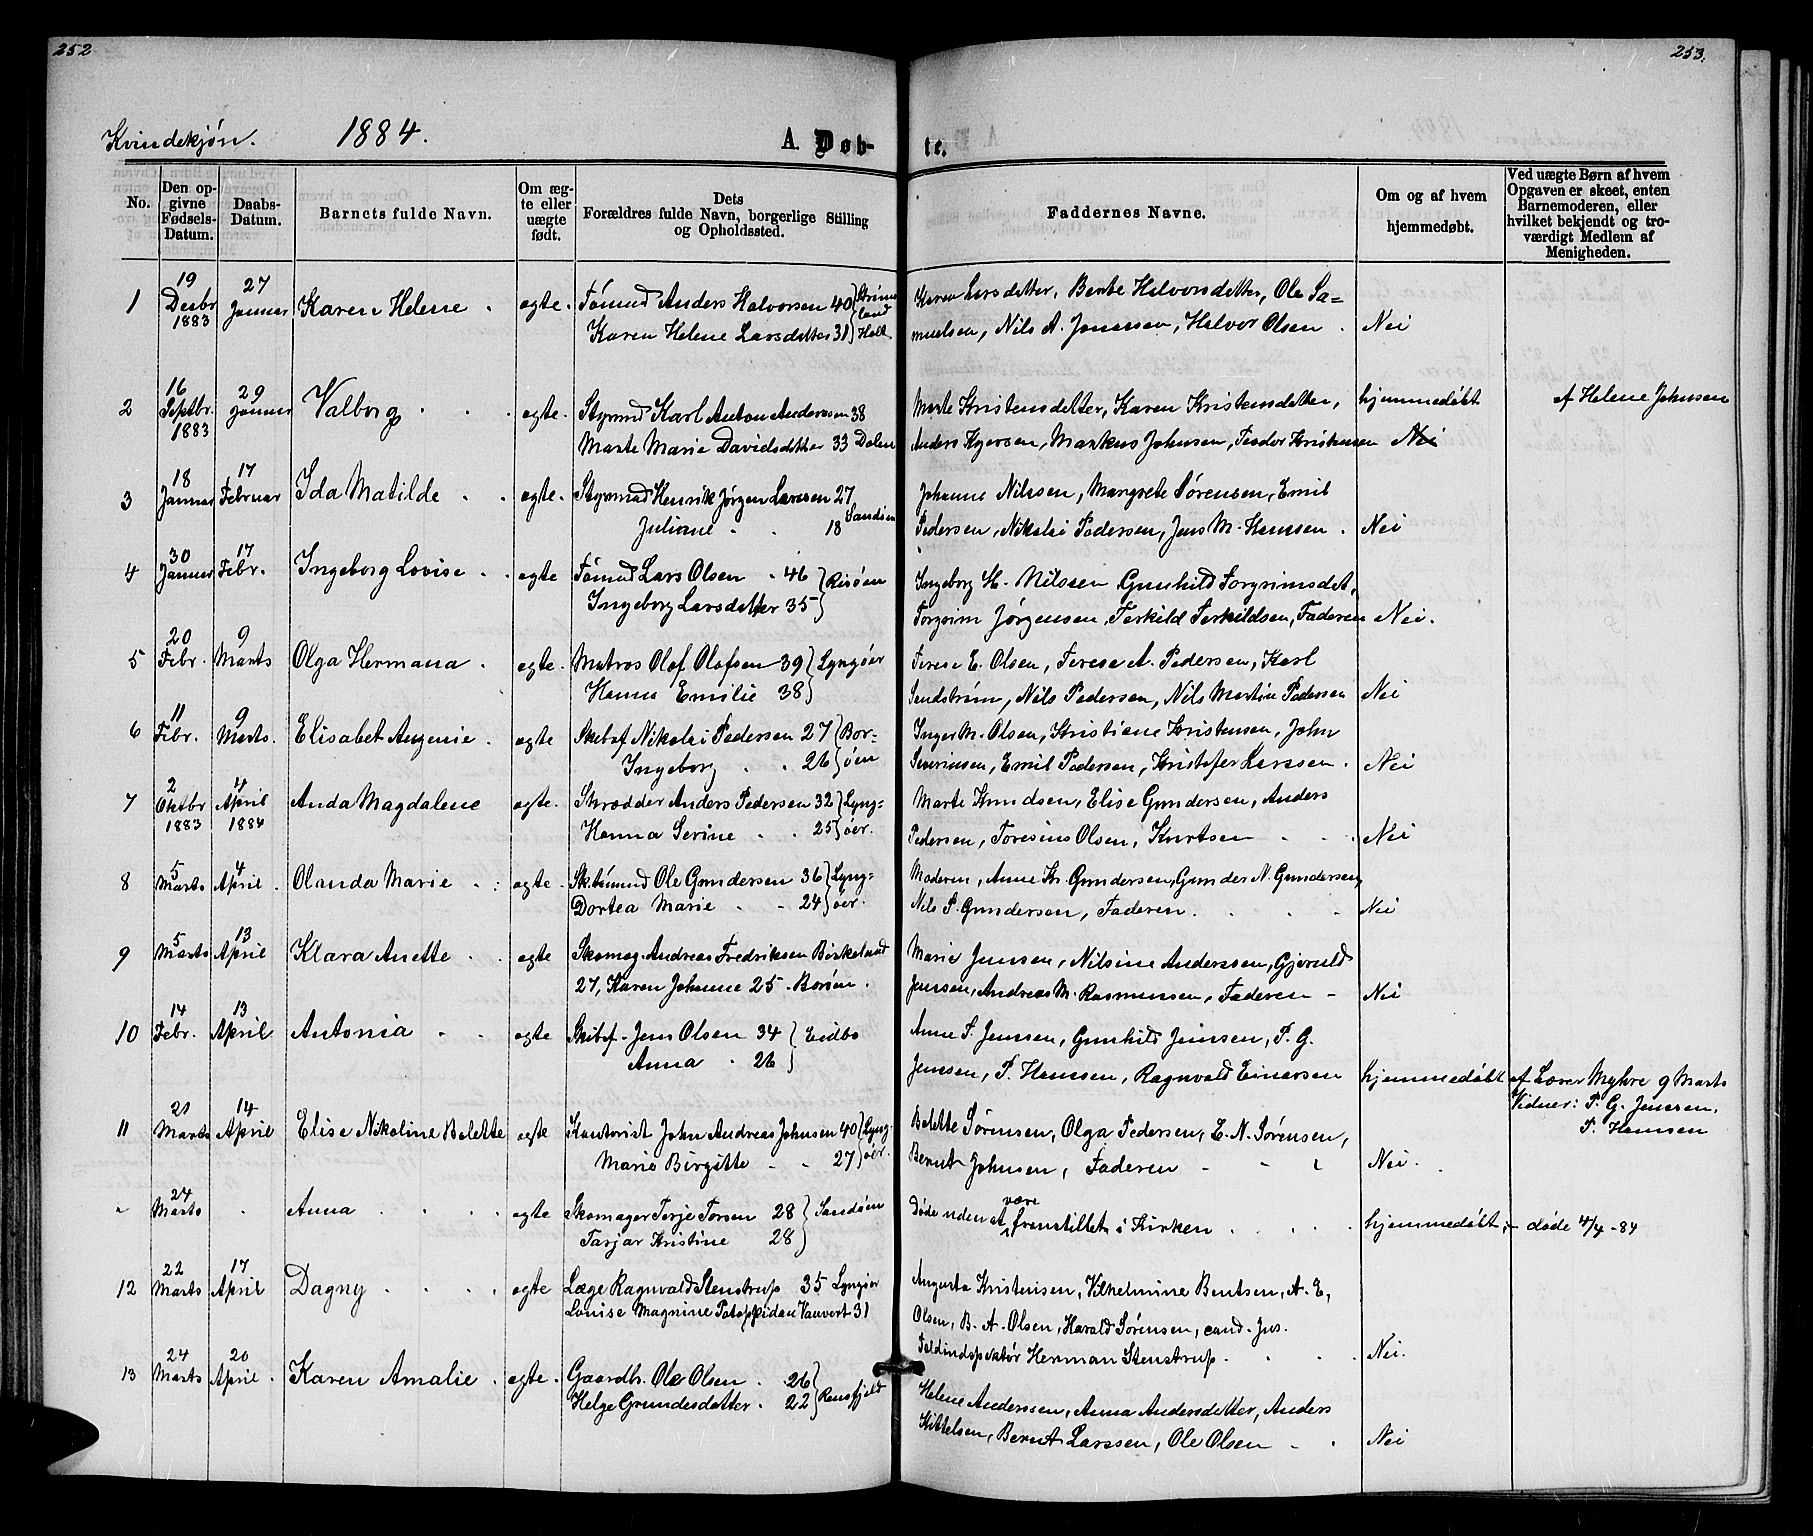 252
253.
Kvindekjøn. 1884. A. Døb- te.
No.
Den op-
givne
Fødsels-
Datum.
Daabs-
Datum.
Barnets fulde Navn.
Om æg-
te eller
uægte
født.
Dets
Forældres fulde Navn, borgerlige Stilling
og Opholdssted.
Faddernes Navne.
Om og af hvem
hjemmedøbt.
Ved uægte Børn af hvem
Opgaven er skeet, enten
Barnemoderen, eller
hvilket bekjendt og tro-
værdigt Medlem af
Menigheden.
19 27
1 Desbr Januar Karen Helene . ægte. Tømmd Anders Halvorsen 40 Karen Larsdatter, Bente Halvorsdatter, Ole Sa-
1883 Karen Helene Larsdatter 31 Holt muelsen, Nils A. Jonassen, Halvor Olsen . Nei
16 29
2 Septbr. Januar Valborg . . . ægte. Styrmd Karl Anton Anderssen 38 Marte Kristensdatter, Karen Kristensdatter, hjemmedøbt af Helene Johnsen
1883 Marte Marie Davidsdatter 33 Dalen Anders Kjersen, Markus Johnsen, Teodor Kristensen Nei
18 17
3 Januar Februar Ida Matilde . . ægte. Styrmd Henrik Jørgen Larssen 27 Johanne Nilssen, Margrete Sørensen, Emil
Juliane . . 18 Sandøen Pedersen, Nikolai Pedersen, Jens M. Hanssen . Nei
30 17
4 Januar Febr. Ingeborg Lovise . . ægte Tømmd Lars Olsen . 46 Risøen Ingeborg H. Nilssen Gunhild Torgrimsdat,
Ingeborg Larsdatter 35 Torgrim Jørgensen, Terkild Terkildsen, Faderen Nei.
20 9
5 Febr. Marts Olga Hermana . ægte Matros Olof Olofsen 39 Lyngøer Terese E. Olsen, Terese A. Pedersen, Karl
Hanna Emilie 38 Sandstrøm, Nils Pedersen, Nils Martin Pedersen Nei
11 9
6 Febr. Marts. Elisabet Augenie . ægte Skibsf Nikolai Pedersen 27 Bor- Inger M. Olsen, Kristiane Kristensen, John
Ingeborg . . 26 øen Severinsen, Emil Pedersen, Kristofer Larssen . Nei
2 4
7 Oktbr April Anda Magdalene ægte. Skrædder Anders Pedersen 32 Lyng- Marte Knudsen, Elise Gundersen, Anders
1883 1884 Hanna Serine . . 25 øer. Pedersen, Toresius Olsen, Knutsen . . Nei
5 4
8 Marts April . Olanda Marie . : ægte. Ole Gundersen 36 Lyng- Moderen, Anne Kr. Gundersen, Gunder N. Gundersen,
Dortea Marie . . 24 øer. Nils P. Gundersen, Faderen. . . . Nei
5 13
9 Marts April Klara Anette . . ægte Skomag. Andreas Fredriksen Birkeland Marie Jenssen, Nilsine Anderssen, Gjeruld
27, Karen Johanne 25 . Borøen . Jenssen, Andreas M. Rasmussen, Faderen - Nei
14 13
10 Febr. April Antonia . . . ægte Skibsf. Jens Olsen 34 Eidbo Anne S. Jenssen, Gunhild Jenssen, P. G.
Anna . 26 Jenssen, P. Hanssen, Ragnvald Einarsen hjemmedøbt af Lærer Myhre 9 Marts
Vidner: P. G. Jenssen,
P. Hanssen
21 14
11 Marts April Elise Nikoline Bolette ægte Kantorist John Andreas Johnsen 40 Lyng- Bolette Sørensen, Olga Pedersen, E. N. Sørensen,
Marie Birgitte . . 27 øer. Bernt Johnsen, Faderen - - Nei .
24
" Marts . Anna . . . . ægte Skomager Terje Torsen 28 Sandøen Døde uden at være fremstillet i Kirken . . . . hjemmedøbt, - døde 4/4 -84
Tarjar Kristine 28
22 17
12 Marts April Dagny . . . . ægte Læge Ragnvald Stenstrup 35 Lyngøer Augusta Kristensen, Vilhelmine Bentsen, A. E,
Louise Magnine Vauvert 31 Olsen, B. A. Olsen, Harald Sørensen, cand. jus.
Toldinspektør Herman Stenstrup. . . Nei.
24 20
13 Marts April . Karen Amalie . ægte . Gaardb. Ole Olsen . 26
Helge Gundesdatter . 22 Helene Anderssen, Anna Andersdatter, Anders
Kittelsen, Bernt Larssen, Ole Olsen . . Nei